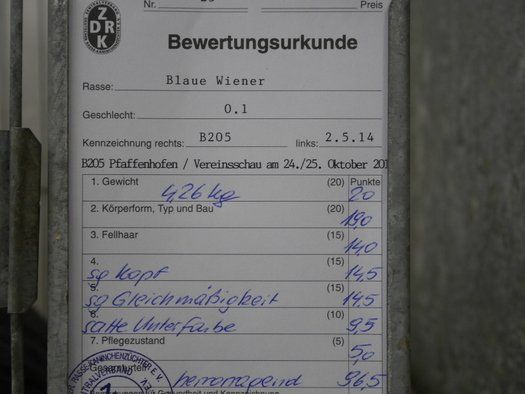 Nr. Preis
Z
DRK
Bewertungsurkunde
Rasse: Blaue Wiener
Geschlecht: 0.1
Kennzeichnung rechts: B205 links: 2.5.14
B205 Pfaffenhofen / Vereinsschau am 24./25. Oktober 201
1. Gewicht (20) Punkte
4,26 kg 20
2. Körperform, Typ und Bau (20)
19,0
3. Fellhaar (15)
14,0
4. (15)
sg Kopf 14,5
5. (15)
sg Gleichmäßigkeit 14,5
6. (10)
satte Unterfarbe 9,5
7. Pflegezustand (5)
5,0
Gesamturteil
hervorragend 96,5